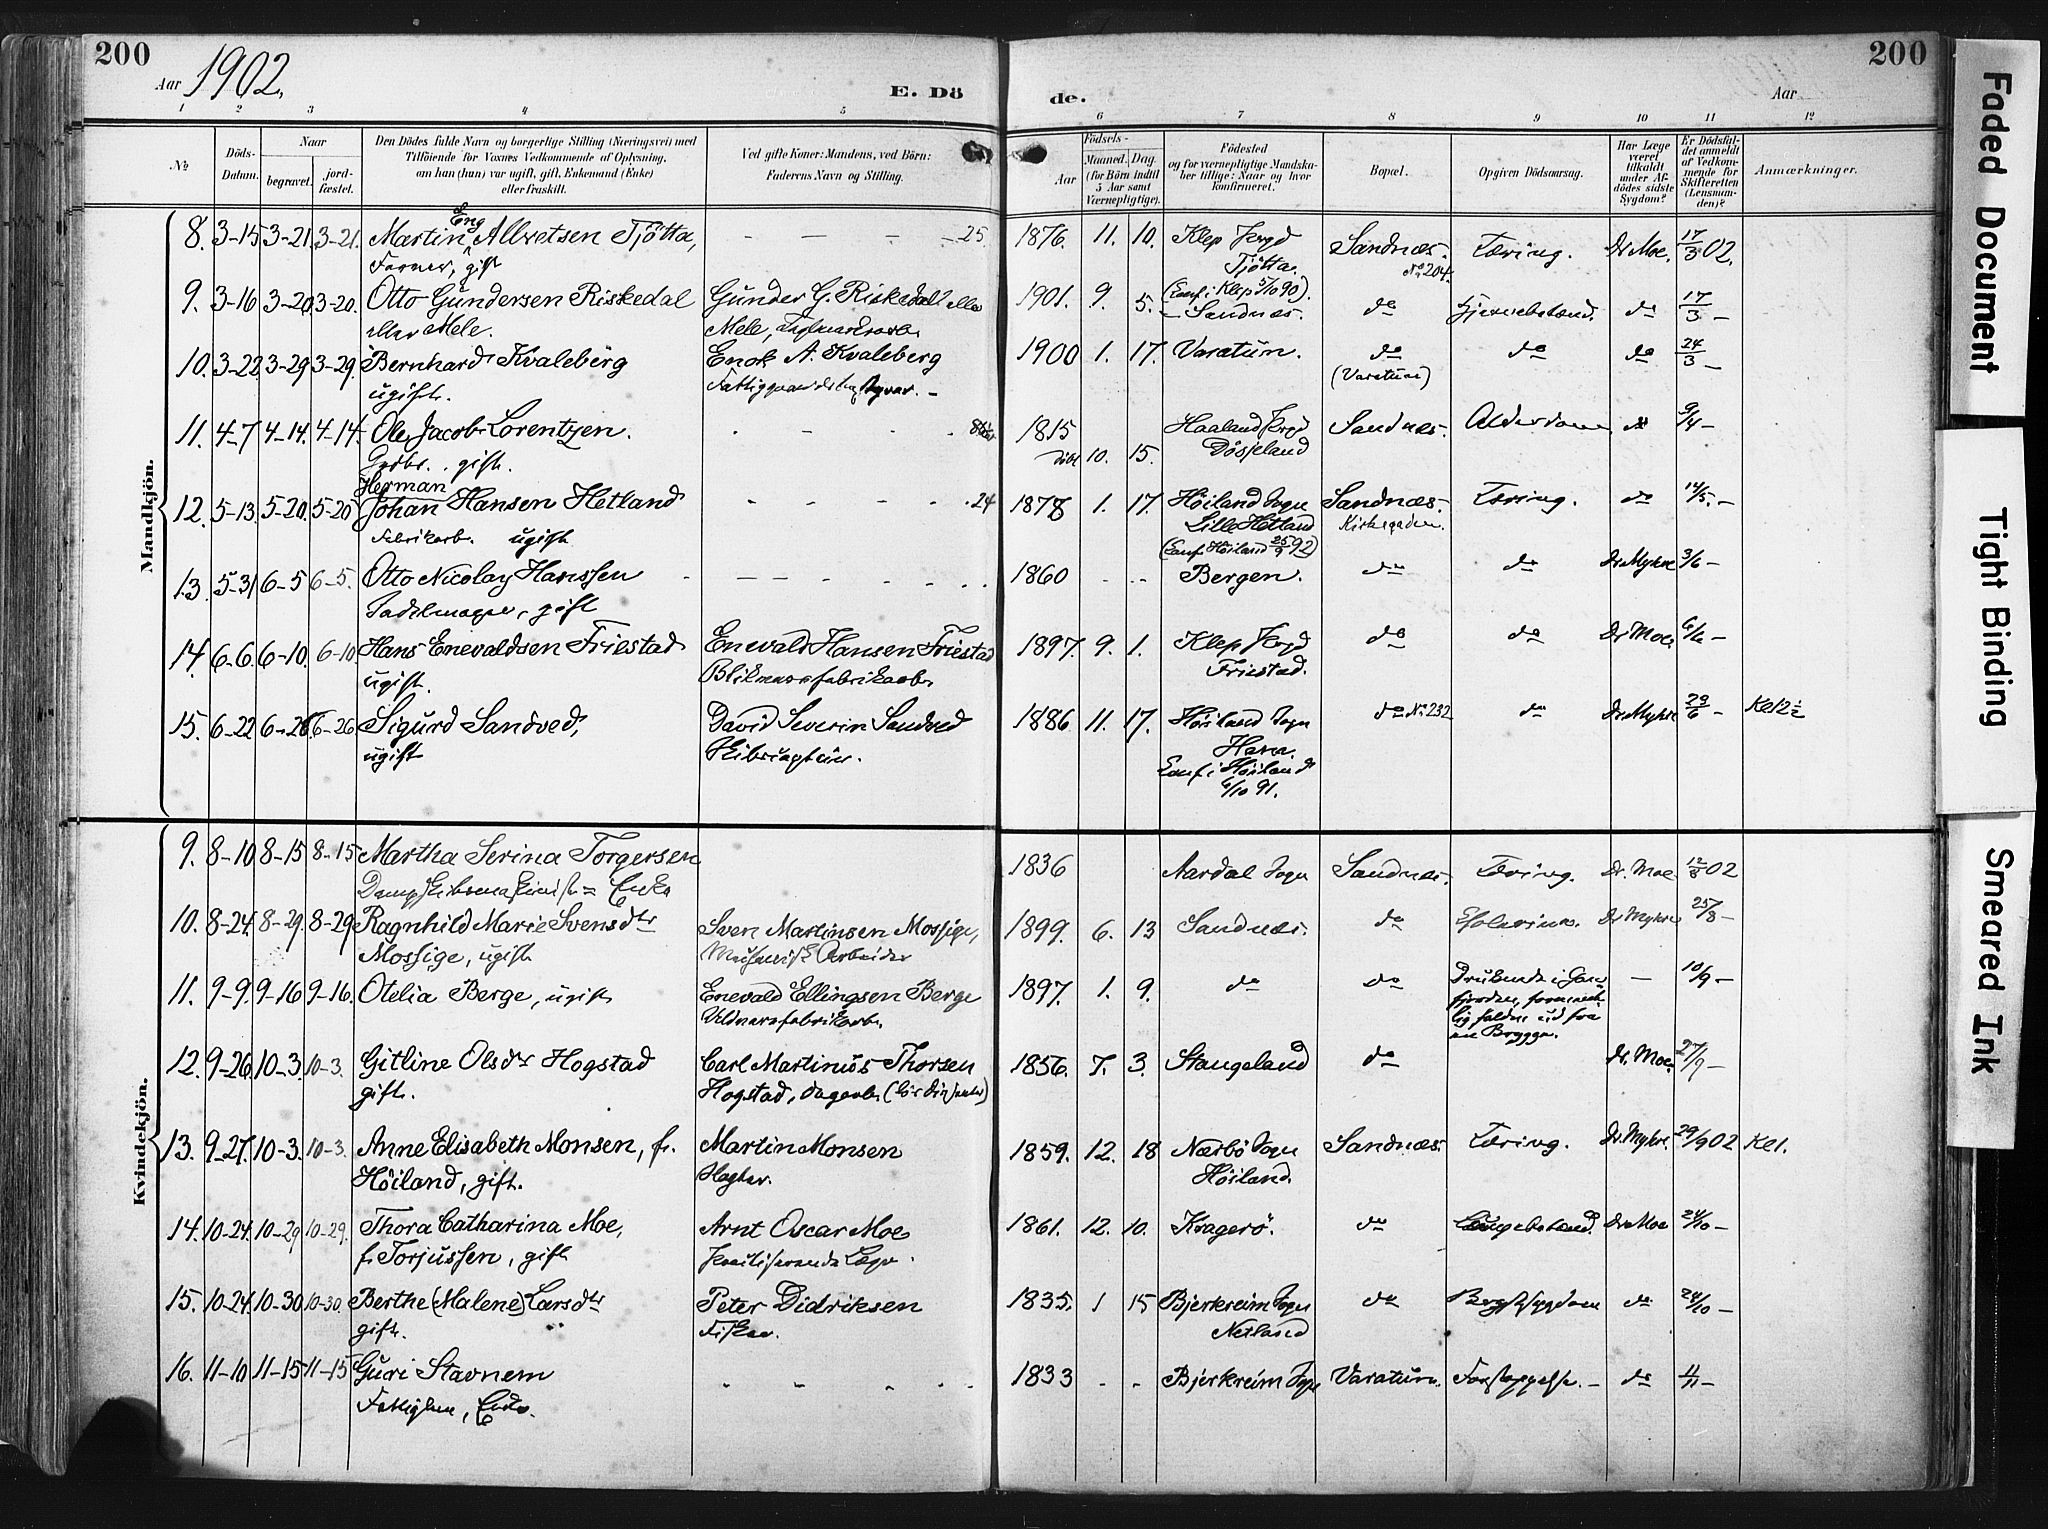 200
Aar 1902.
E. Dö
de.
Aar
200
1 2 3 4 5
6 7 8 9 10 11 12
No
Döds-
Datum.
Naar
begravet.
jord-
fæstet.
Den Dödes fulde Navn og borgerlige Stilling (Næringsvei) med
Tilföiende for Voxnes Vedkommende af Oplysning,
om han (hun) var ugift, gift, Enkemand (Enke)
eller fraskilt.
Ved gifte Koner: Mandens, ved Börn:
Faderens Navn og Stilling.
Födsels-
Aar
Maaned. Dag.
(for Börn indtil
5 Aar samt
Værnepligtige).
Födested
og for værnepligtige Mandska-
ber tillige: Naar og hvor
konfirmeret.
Bopæl.
Opgiven Dödsaarsag.
Har Læge
været
tilkaldt
under Af-
dödes sidste
Sygdom?
Er Dödsfal-
det anmeldt
af Vedkom-
mende for
Skifteretten
(Lensman-
den)?
Anmærkninger.
Mandkjön.
8. 3-15 3-21. 3-21. Martin Eng Allvetsen Tjötta, - - - - 25. 1876. 11. 10. Klep Prgd Sandnæs. Tæring. Dr Moe. 17/3 02.
gift Tjötta. No 204.
(Conf. i Klep 5/10 90).
9. 3-16 3-20 3-20. Otto Gundersen Riskedal Gunder G. Riskedal eller 1901. 9. 5. Sandnæs. do do 17/3 -
eller Mele. Mele,
10. 3-22 3-29 3-29. Bernhard Kvaleberg Enok A. Kvaleberg 1900 1. 17. Varatun. do do do 24/3 -
ugift. (Varatun)
11. 4-7 4-14. 4-14 Ole Jacob Lorentzen. 1815 Haaland Prgd Sandnæs. Alderdom do 9/4 -
gift. döbt 10. 15.
12. 5-13. 5-20. 5-20 Herman
Johan Hansen Hetland - - - - 24 1878 1. 17. Höiland Sogn Sandnæs. Tæring. do 14/5. -
Fabrikarb. ugift Lille Hetland Kirkegaden.
(Conf. Höiland 25/9 92)
13. 5-31 6-5 6-5. Otto Nicolay Hanssen 1860 Bergen. do do Dr Mykre 3/6 -
Sadelmager, gift
14. 6-6. 6-10. 6-10 Hans Enevaldsen Friestad Enevald Hansen Friestad 1897. 9. 1. Klep Prgd do do Dr Moe. 6/6 -
ugift. Blikvarefabrikarb. Friestad.
15. 6-22 6-26 6-26 Sigurd Sandved, David Severin Sandved 1886 11. 17. Höiland Sogn do No 232 do Dr Mykre 23/6 - Kl 2 1/2
ugift Hana.
Conf. i Höiland
4/10 91.
Kvindekjön.
9. 8-10 8-15 8-15 Martha Serina Torgersen 1836 Aardal Sogn Sandnæs. Tæring. Dr. Moe 12/8 02
Dampskibsmaskinist = Enke
10. 8-24. 8-29. 8-29 Ragnhild Marie Svensdtr Sven Martinsen Mossige, 1899. 6. 13 Sandnæs. do Dr Mykre 25/8 -
Mossige, ugift Arbeider
11. 9-9. 9-16 9-16. Otelia Berge, ugift Enevald Ellingsen Berge 1897. 1. 9. do do Druknede i Gans- - 10/9 -
Uldvarefabrikarb. fjorden,
falden ud fra
en Brygge.
12. 9-26. 10-3. 10-3. Gitline Olsdtr Hogstad Carl Martinus Thorsen 1856. 7. 3. Stangeland do Dr. Moe. 27/9 -
gift. Hogstad, Dagarb.
13. 9-27. 10-3. 10-3. Anne Elisabeth Monsen, f. Martin Monsen 1859. 12. 18 Nærbö Sogn Sandnæs. Tæring. Dr. Mykre. 29/9 02 Kl 1.
Höiland, gift. Höiland.
14. 10-24. 10-29 10-29. Thora Catharina Moe, Arnt Oscar Moe 1861. 12. 10. Kragerö. do Dr Moe 24/10 -
f. Torjussen, gift Praktiserende Læge.
15. 10-24. 10-30 10-30. Berthe (Malene) Larsdtr Peter Didriksen 1835. 1 15 Bjerkreim Sogn do do 24/10 -
gift. Fisker. Netland
16. 11-10 11-15 11-15 Guri Stavnem 1833 - - Bjerkreim Sogn Varatun. Forstoppelse. - do 11/11 -
Enke.
Faded Document
Tight Binding
Smeared Ink